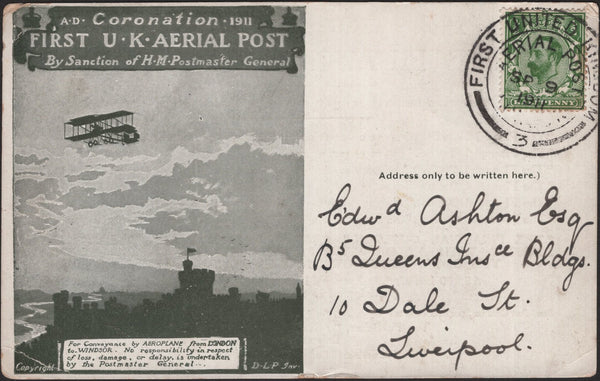 A·D· Coronation ·1911
FIRST U·K·AERIAL POST
By Sanction of H·M·Postmaster General
For Conveyance by AEROPLANE from LONDON
to WINDSOR. No responsibility in respect
of loss, damage, or delay, is undertaken
by the Postmaster General
Copyright
D·L·P Inv.
FIRST UNITED KINGDOM
AERIAL POST
SP 9
1911
3
PENNY
Address only to be written here.)
Edwd Ashton Esq
B5 Queens Insce Bldgs.
10 Dale St.
Liverpool.